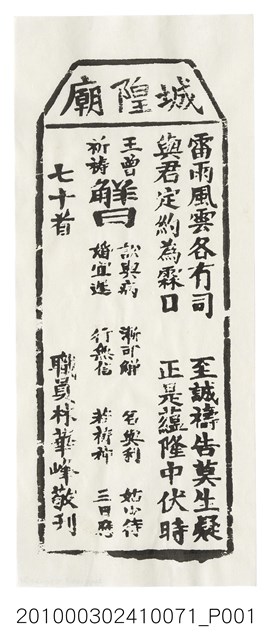 城隍廟
雷雨風雲各有司 至誠禱告莫生疑
與君定約為霖日 正是蘊隆中伏時
王曾祈禱
解曰
訟與病 漸可解 名與利 姑少待
婚宜遲 行無信 若祈神 三日應
七十首 職員林華峰敬刊
201000302410071_P001